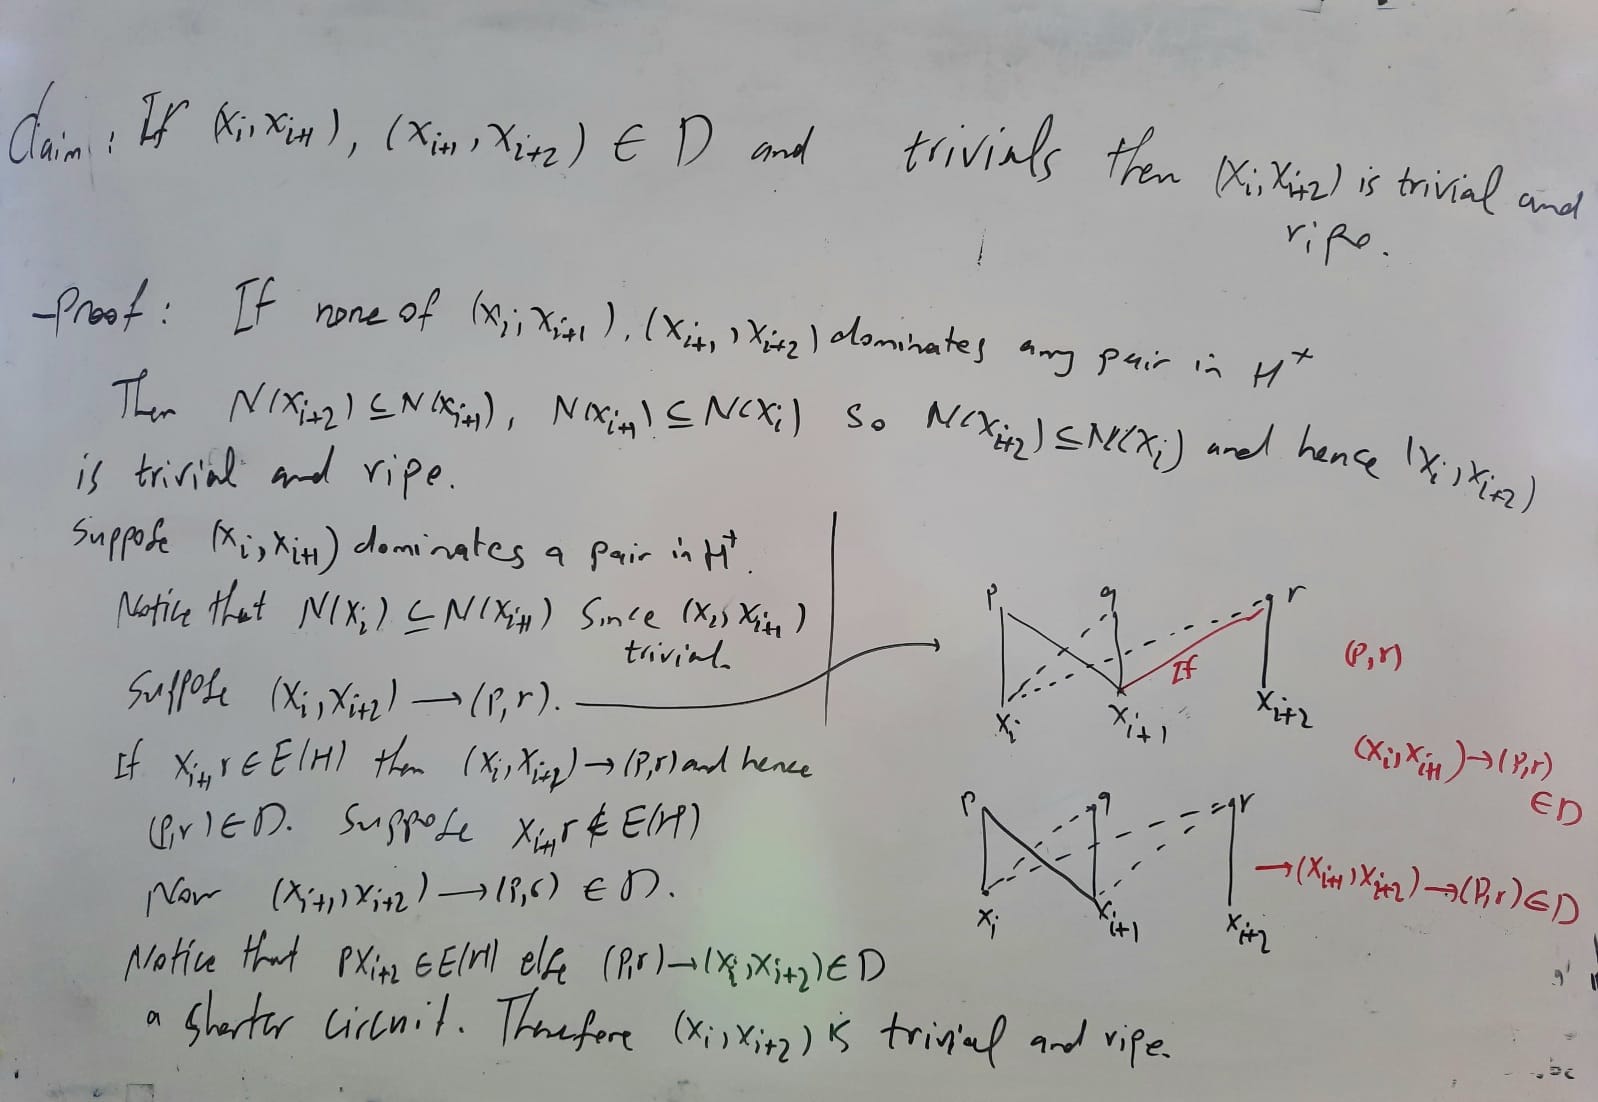 Claim: If (x_i, x_{i+1}), (x_{i+1}, x_{i+2}) ∈ D and trivials then (x_i, x_{i+2}) is trivial and
ripe.
-Proof: If none of (x_i, x_{i+1}), (x_{i+1}, x_{i+2}) dominates any pair in H^+
Then N(x_{i+2}) ⊆ N(x_{i+1}), N(x_{i+1}) ⊆ N(x_i) so N(x_{i+2}) ⊆ N(x_i) and hence (x_i, x_{i+2})
is trivial and ripe.
Suppose (x_i, x_{i+1}) dominates a pair in H^+.
Notice that N(x_i) ⊆ N(x_{i+1}) Since (x_i, x_{i+1})
trivial.
Suppose (x_i, x_{i+2}) → (p, r).
If x_{i+1} r ∈ E(H) then (x_i, x_{i+2}) → (p, r) and hence
(p, r) ∈ D. Suppose x_{i+1} r ∉ E(H)
Now (x_{i+1}, x_{i+2}) → (p, r) ∈ D.
Notice that p x_{i+2} ∈ E(H) else (p, r) → (x_i, x_{i+2}) ∈ D
a shorter circuit. Therefore (x_i, x_{i+2}) is trivial and ripe.
p q r
If
x_i x_{i+1} x_{i+2}
(p, r)
(x_i, x_{i+1}) → (p, r)
∈ D
p q r
x_i x_{i+1} x_{i+2}
→ (x_{i+1}, x_{i+2}) → (p, r) ∈ D